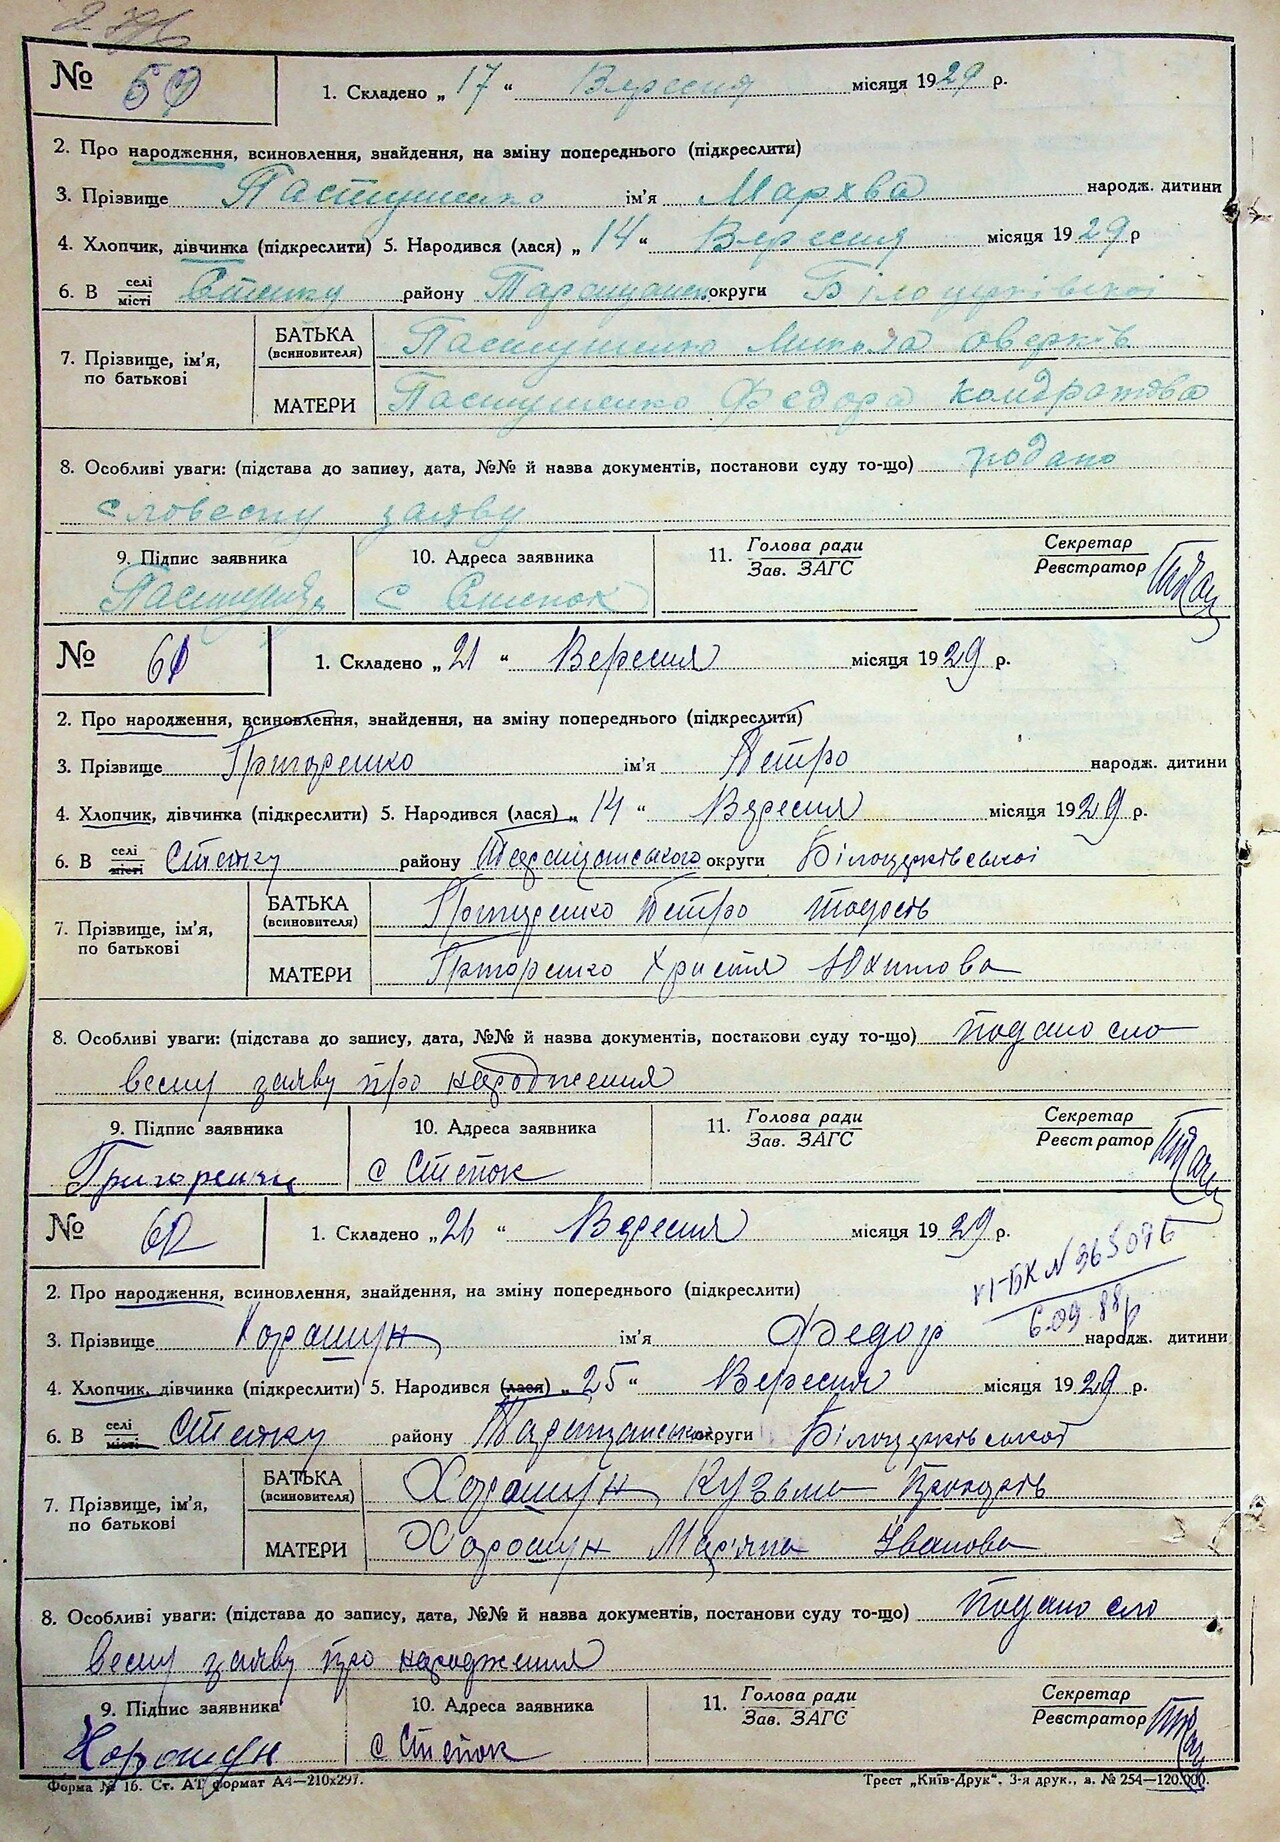 № 60 1. Складено „ 17 “ Вересня місяця 1929 р.
2. Про народження, всиновлення, знайдення, на зміну попереднього (підкреслити)
3. Прізвище Пастушенко ім'я Мархва народж. дитини
4. Хлопчик, дівчинка (підкреслити) 5. Народився (лася) „ 14 “ Вересня місяця 1929 р
6. В селі місті Степку району округи Білоцерківської
7. Прізвище, ім'я, по батькові
БАТЬКА (всиновителя) Пастушенко Микола Оверків
МАТЕРИ Пастушенко Федора Кондратова
8. Особливі уваги: (підстава до запису, дата, №№ й назва документів, постанови суду то-що) подано
словесну заяву
9. Підпис заявника 10. Адреса заявника 11. Голова ради Зав. ЗАГС Секретар Реєстратор
с Степок
№ 61 1. Складено „ 21 “ Вересня місяця 1929 р.
2. Про народження, всиновлення, знайдення, на зміну попереднього (підкреслити)
3. Прізвище Григоренко ім'я Петро народж. дитини
4. Хлопчик, дівчинка (підкреслити) 5. Народився (лася) „ 14 “ Вересня місяця 1929 р.
6. В селі місті Степку району Таращанського округи Білоцерківської
7. Прізвище, ім'я, по батькові
БАТЬКА (всиновителя) Григоренко Петро
МАТЕРИ Григоренко Христя Юхимова
8. Особливі уваги: (підстава до запису, дата, №№ й назва документів, постакови суду то-що) подано сло
весну заяву про народження
9. Підпис заявника 10. Адреса заявника 11. Голова ради Зав. ЗАГС Секретар Реєстратор
Григоренко с Степок
№ 62 1. Складено „ 26 “ Вересня місяця 1929 р.
VI-БК N 365076
6.09.88р
2. Про народження, всиновлення, знайдення, на зміну попереднього (підкреслити)
3. Прізвище Хорошун ім'я Федор народж. дитини
4. Хлопчик, дівчинка (підкреслити) 5. Народився (лася) „ 25 “ Вересня місяця 1929 р.
6. В селі місті Степку району округи Білоцерківської
7. Прізвище, ім'я, по батькові
БАТЬКА (всиновителя) Хорошун Кузьма
МАТЕРИ Хорошун Мар'яна Іванова
8. Особливі уваги: (підстава до запису, дата, №№ й назва документів, постанови суду то-що) подано сло
весну заяву про народження
9. Підпис заявника 10. Адреса заявника 11. Голова ради Зав. ЗАГС Секретар Реєстратор
Хорошун с Степок
Форма № 16. Ст. АТ формат А4—210х297. Трест „Київ-Друк“. 3-я друк., з. № 254—120.000.